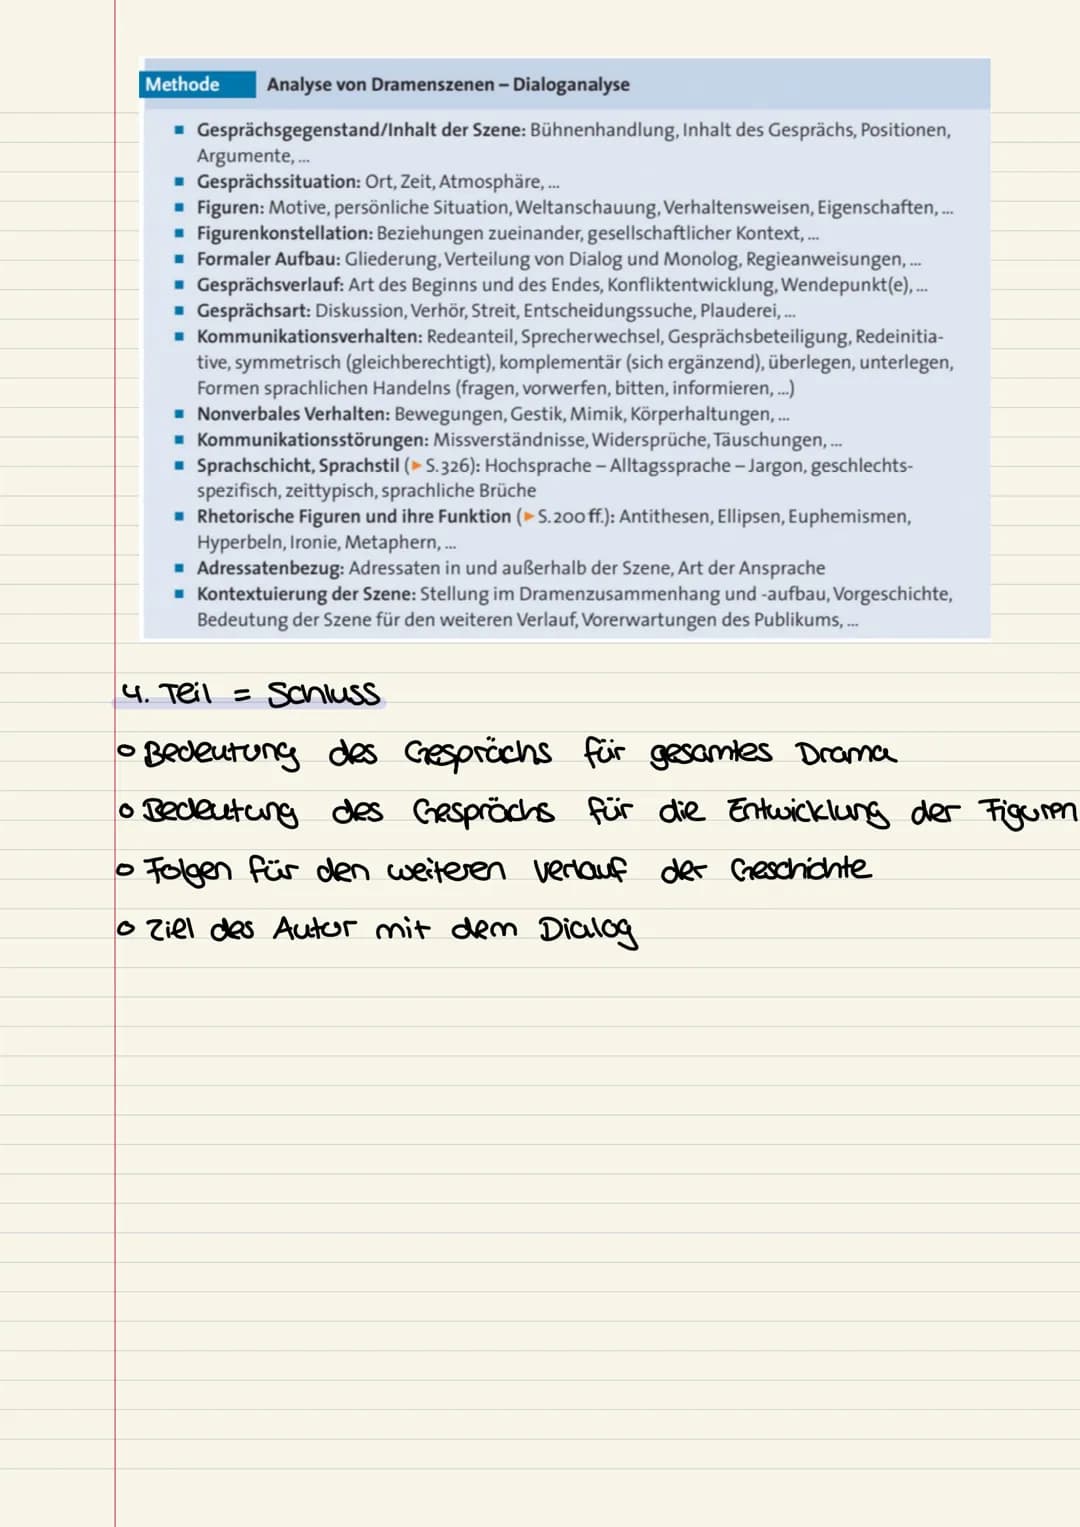 Methode Analyse von Dramenszenen – Dialoganalyse
■ Gesprächsgegenstand/Inhalt der Szene: Bühnenhandlung, Inhalt des Gesprächs, Positionen,
Argumente, ...
■ Gesprächssituation: Ort, Zeit, Atmosphäre, ...
■ Figuren: Motive, persönliche Situation, Weltanschauung, Verhaltensweisen, Eigenschaften, ...
■ Figurenkonstellation: Beziehungen zueinander, gesellschaftlicher Kontext, ...
■ Formaler Aufbau: Gliederung, Verteilung von Dialog und Monolog, Regieanweisungen, ...
■ Gesprächsverlauf: Art des Beginns und des Endes, Konfliktentwicklung, Wendepunkt(e), ...
■ Gesprächsart: Diskussion, Verhör, Streit, Entscheidungssuche, Plauderei, ...
■ Kommunikationsverhalten: Redeanteil, Sprecherwechsel, Gesprächsbeteiligung, Redeinitia-
tive, symmetrisch (gleichberechtigt), komplementär (sich ergänzend), überlegen, unterlegen,
Formen sprachlichen Handelns (fragen, vorwerfen, bitten, informieren, ...)
■ Nonverbales Verhalten: Bewegungen, Gestik, Mimik, Körperhaltungen, ...
■ Kommunikationsstörungen: Missverständnisse, Widersprüche, Täuschungen, ...
■ Sprachschicht, Sprachstil (▶ S. 326): Hochsprache – Alltagssprache – Jargon, geschlechts-
spezifisch, zeittypisch, sprachliche Brüche
■ Rhetorische Figuren und ihre Funktion (▶ S. 200 ff.): Antithesen, Ellipsen, Euphemismen,
Hyperbeln, Ironie, Metaphern, ...
■ Adressatenbezug: Adressaten in und außerhalb der Szene, Art der Ansprache
■ Kontextuierung der Szene: Stellung im Dramenzusammenhang und -aufbau, Vorgeschichte,
Bedeutung der Szene für den weiteren Verlauf, Vorerwartungen des Publikums, ...
4. Teil = Schluss
o Bedeutung des Gesprächs für gesamtes Drama
o Bedeutung des Gesprächs für die Entwicklung der Figuren
o Folgen für den weiteren Verlauf der Geschichte
o Ziel des Autor mit dem Dialog